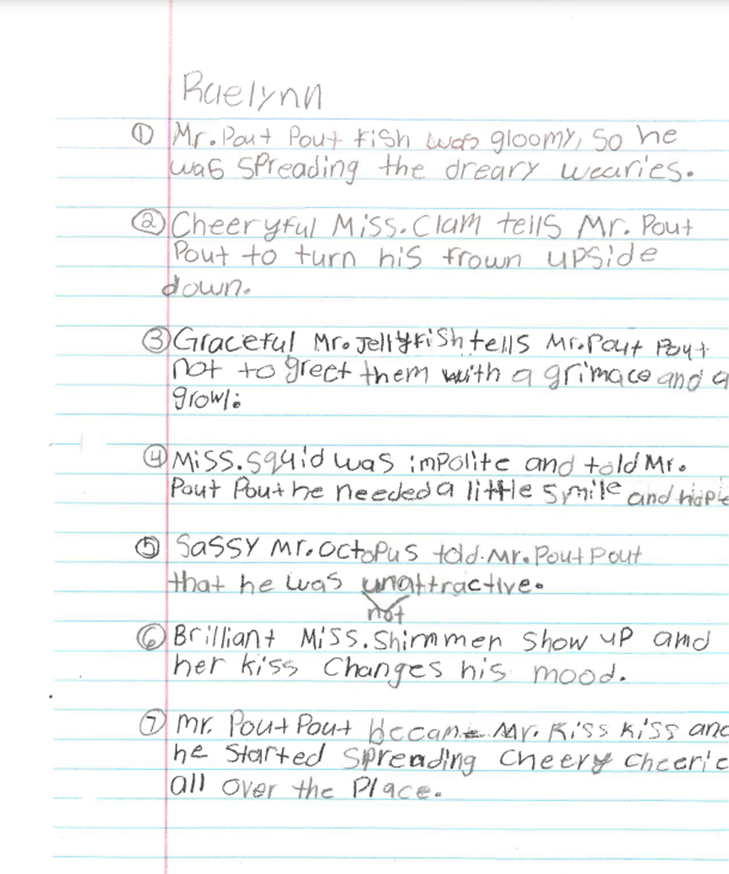 Raelynn
① Mr. Pout Pout fish was gloomy, so he
was spreading the dreary wearies.
② Cheeryful Miss. Clam tells Mr. Pout
Pout to turn his frown upside
down.
③ Graceful Mr. Jellyfish tells Mr. Pout Pout
not to greet them with a grimace and a
growl.
④ Miss. Squid was impolite and told Mr.
Pout Pout he needed a little smile and
⑤ Sassy Mr. Octopus told Mr. Pout Pout
that he was unattractive.
not
⑥ Brilliant Miss. Shimmer Show up and
her kiss Changes his mood.
⑦ Mr. Pout Pout became Mr. Kiss Kiss and
he started spreading Cheery Cheerie
all over the Place.